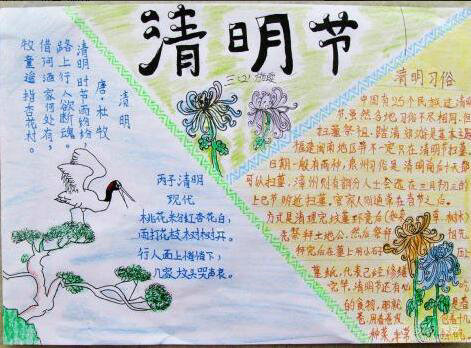 清明节
三(2)
清明
唐·杜牧
清明时节雨纷纷,
路上行人欲断魂。
借问酒家何处有,
牧童遥指杏花村。
丙子清明
现代
桃花米红杏花白,
雨打花枝树树开。
行人面上悄悄下,
几家坟头哭声哀。
清明习俗
中国有25个民族过清明
节,虽然各地习俗不尽相同,但
扫墓祭祖、踏清郊游是基本
福建闽南地区并不一定只在清明节扫墓。
日期一般有两种,泉州习俗是清明前后十天都
可以扫墓,漳州则有部分人士会选在三月初三的
上巳节附近扫墓。客家人则通常在春节之后。
方式是清理完坟墓环境后
先祭拜土地公,然后在
拜完后在墓上用小石
墓纸,代表已经修缮
完毕。清明节还有
的食物,那就